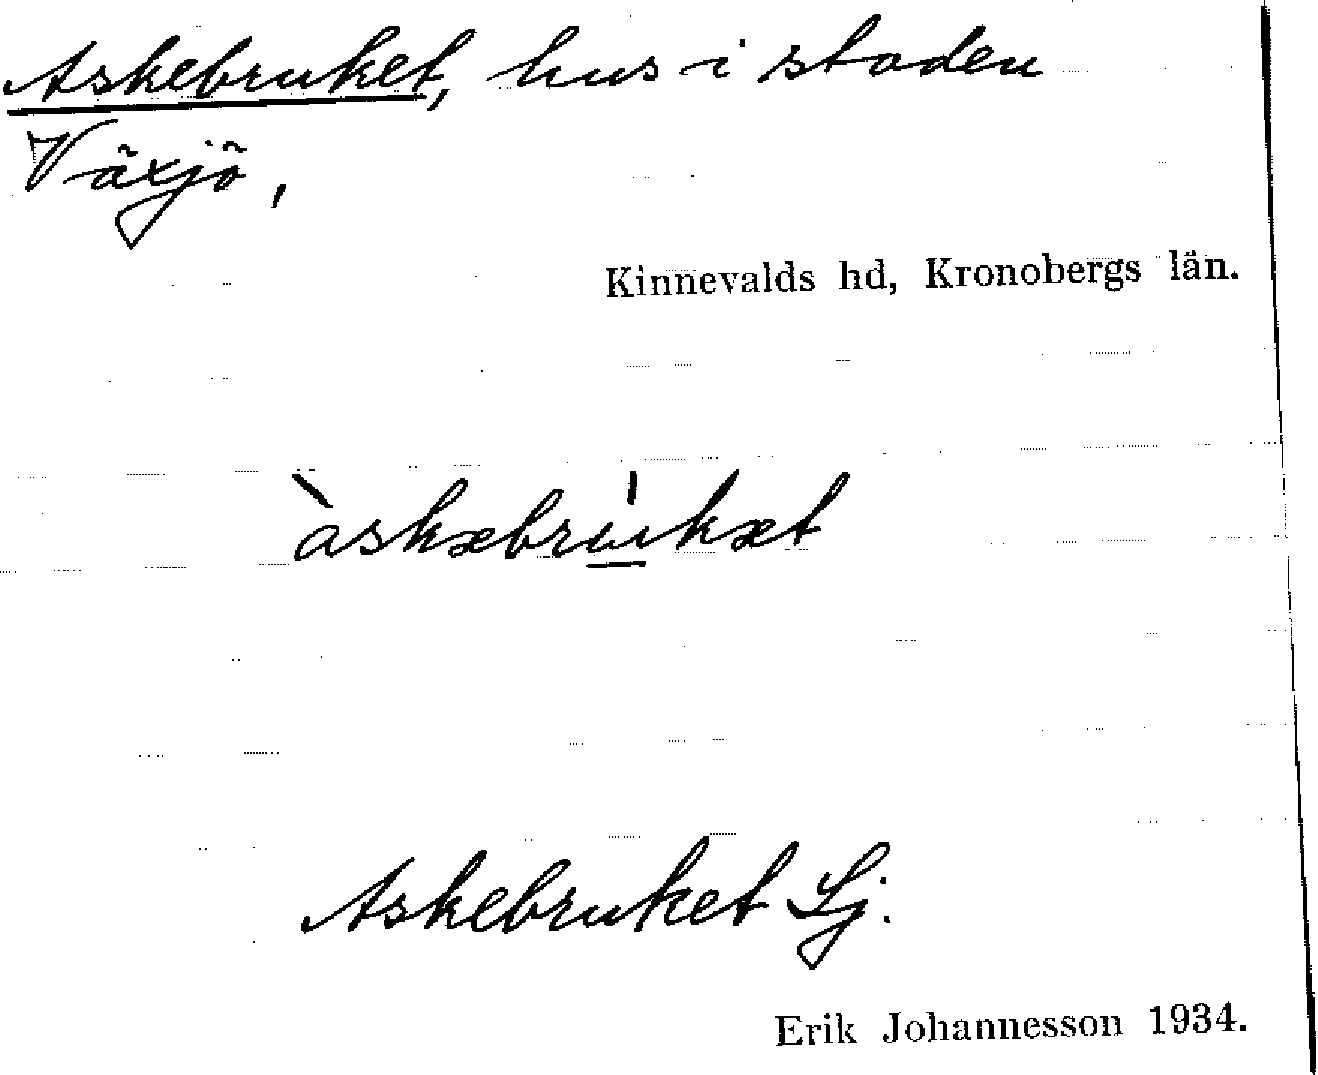 Askebruket, hus i staden
Växjö,
Kinnevalds hd, Kronobergs län.
àskæbru̲̍kæt
Askebruket Lj.
Erik Johannesson 1934.